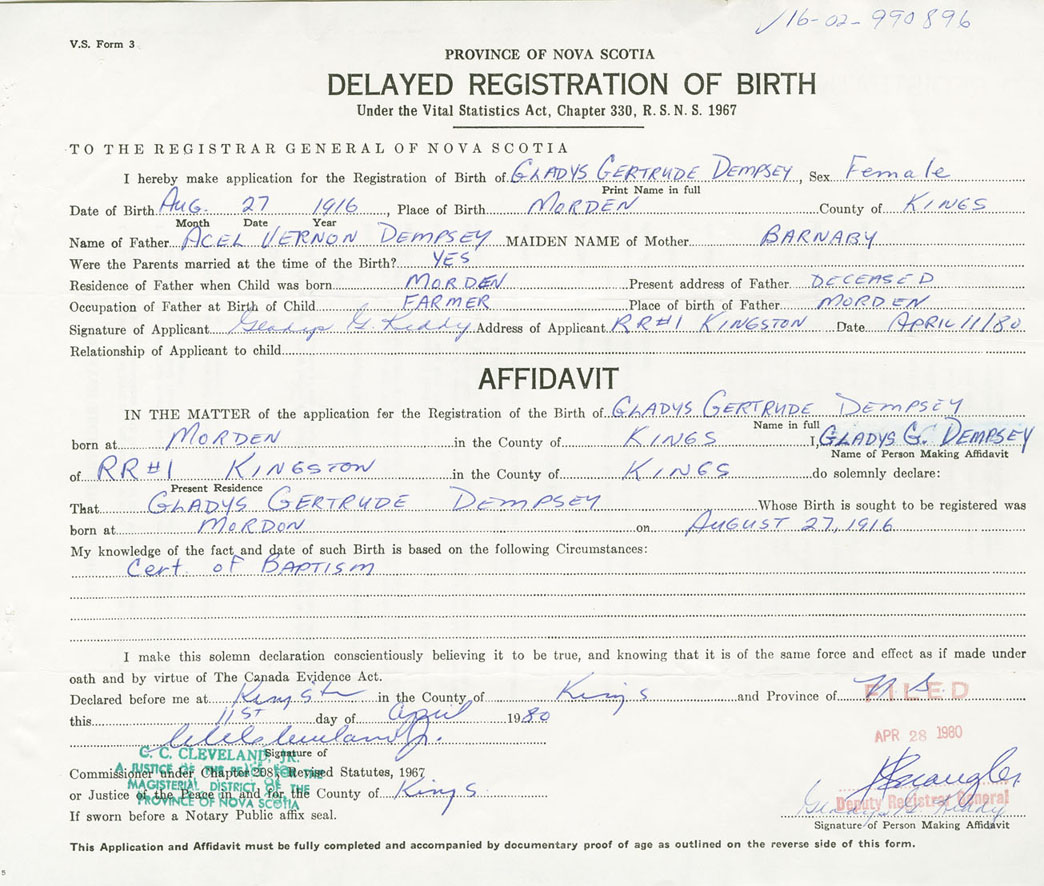 16-02-990896
V.S. Form 3
PROVINCE OF NOVA SCOTIA
DELAYED REGISTRATION OF BIRTH
Under the Vital Statistics Act, Chapter 330, R. S. N. S. 1967
TO THE REGISTRAR GENERAL OF NOVA SCOTIA
I hereby make application for the Registration of Birth of GLADYS GERTRUDE DEMPSEY, Sex Female
Print Name in full
Date of Birth AUG. 27 1916, Place of Birth MORDEN County of KINGS
Month Date Year
Name of Father ACEL VERNON DEMPSEY MAIDEN NAME of Mother BARNABY
Were the Parents married at the time of the Birth? YES
Residence of Father when Child was born MORDEN Present address of Father DECEASED
Occupation of Father at Birth of Child FARMER Place of birth of Father MORDEN
Signature of Applicant Gladys G. Keddy Address of Applicant RR#1 KINGSTON Date APRIL 11/80
Relationship of Applicant to child
AFFIDAVIT
IN THE MATTER of the application for the Registration of the Birth of GLADYS GERTRUDE DEMPSEY
Name in full
born at MORDEN in the County of KINGS I, GLADYS G. DEMPSEY
Name of Person Making Affidavit
of RR#1 KINGSTON in the County of KINGS do solemnly declare:
Present Residence
That GLADYS GERTRUDE DEMPSEY Whose Birth is sought to be registered was
born at MORDON on AUGUST 27, 1916
My knowledge of the fact and date of such Birth is based on the following Circumstances:
Cert. OF BAPTISM
I make this solemn declaration conscientiously believing it to be true, and knowing that it is of the same force and effect as if made under
oath and by virtue of The Canada Evidence Act.
Declared before me at Kingston in the County of Kings and Province of N S
FILED
this 11ST day of April 1980
APR 28 1980
C. C. CLEVELAND, JR.
Signature of
A JUSTICE OF THE PEACE FOR THE
Commissioner under Chapter 208, Revised Statutes, 1967
MAGISTERIAL DISTRICT OF THE
or Justice of the Peace in and for the County of Kings
PROVINCE OF NOVA SCOTIA
Deputy Registrar General
Gladys G Keddy
If sworn before a Notary Public affix seal.
Signature of Person Making Affidavit
This Application and Affidavit must be fully completed and accompanied by documentary proof of age as outlined on the reverse side of this form.
5